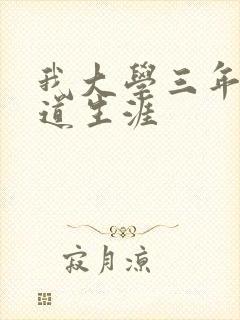 我大學三年
道生涯
寂月涼